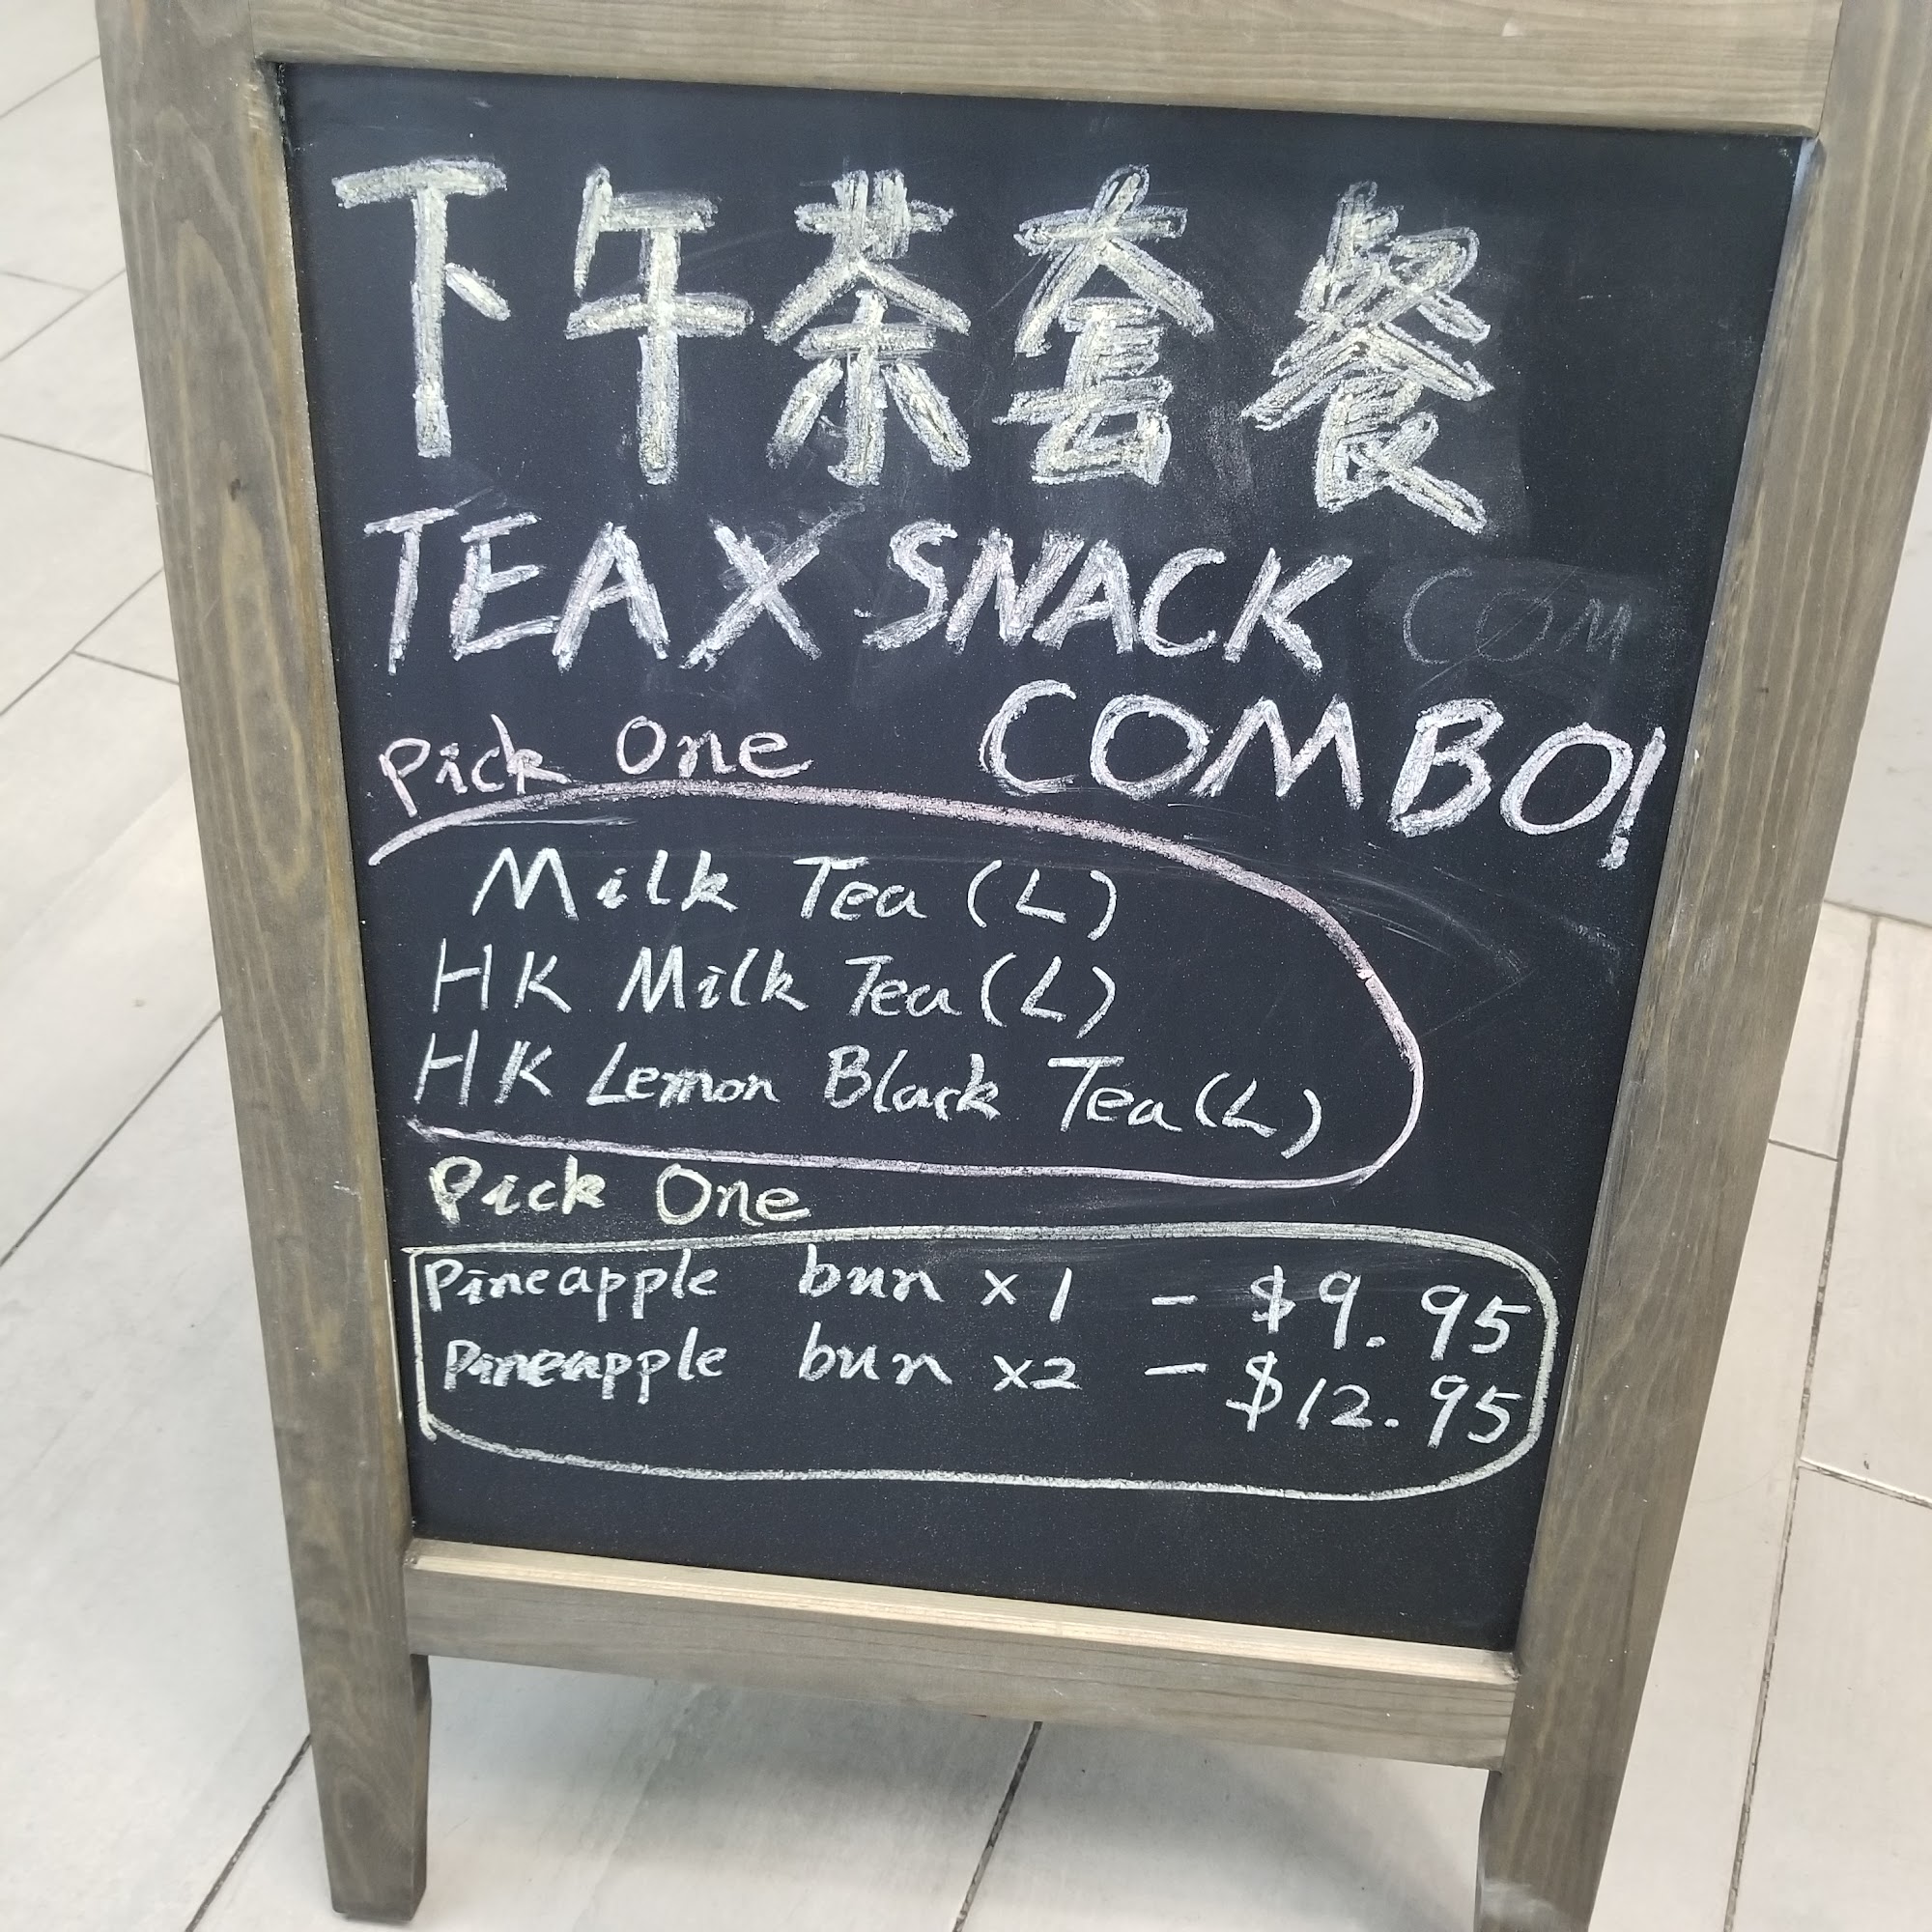 下午茶套餐
TEA X SNACK COM
COMBO!
Pick One
Milk Tea (L)
HK Milk Tea (L)
HK Lemon Black Tea (L)
Pick One
Pineapple bun x 1 - $9.95
Pineapple bun x2 - $12.95